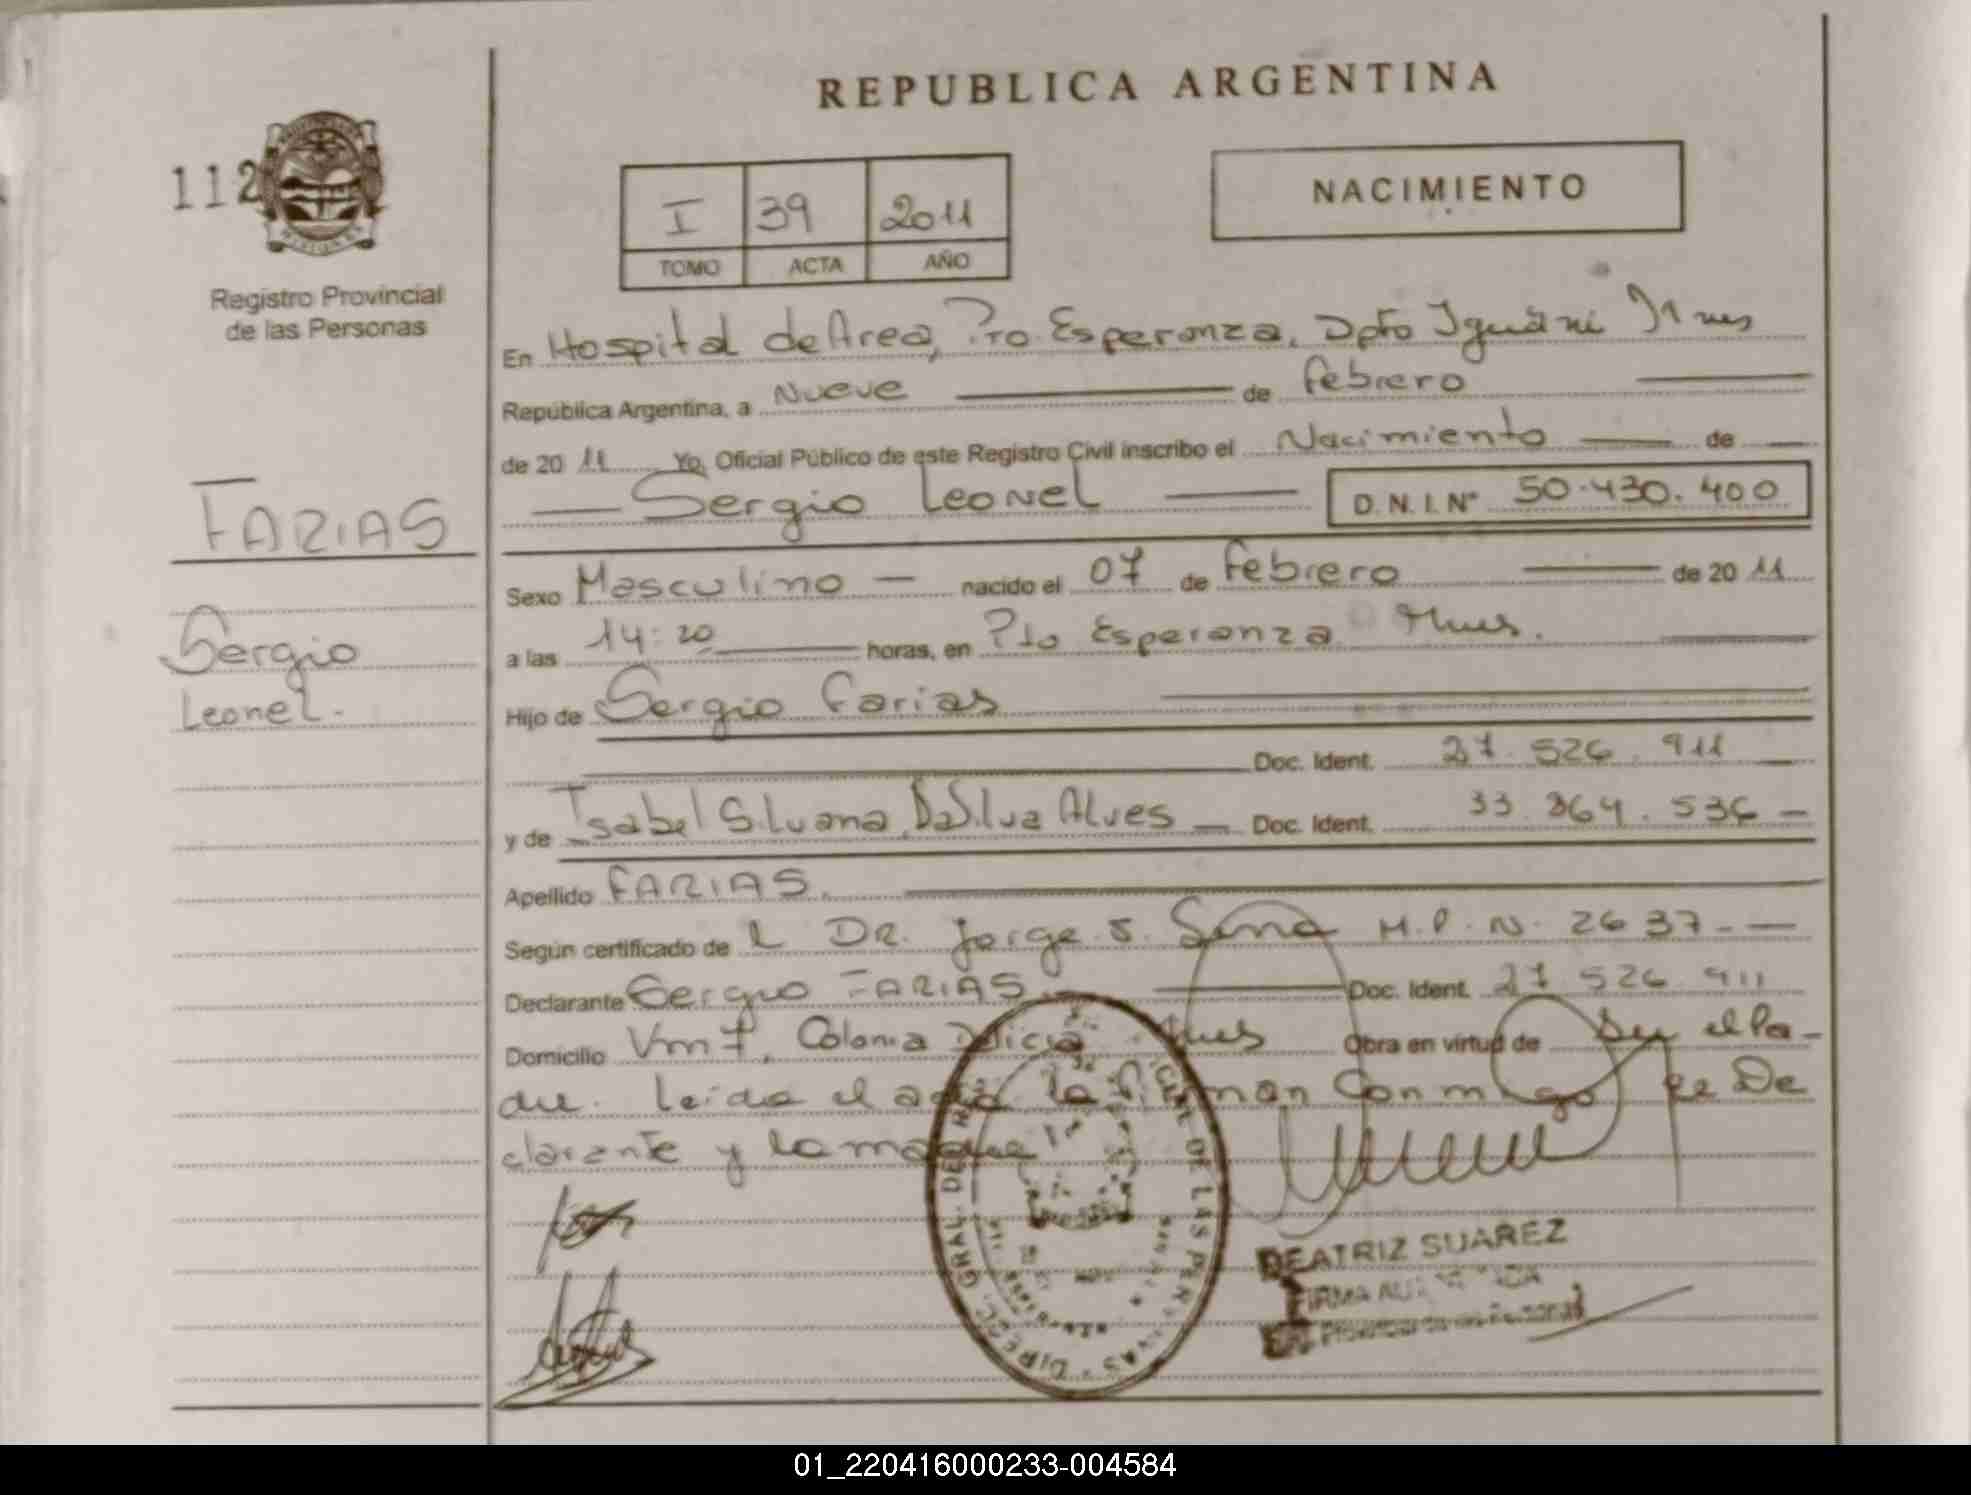 REPUBLICA ARGENTINA
112
Registro Provincial
de las Personas
I 39 2011
TOMO ACTA AÑO
NACIMIENTO
En Hospital de Area, Pto. Esperanza, Dpto Iguazú Mnes
República Argentina, a Nueve de febrero
de 20 11 Yo, Oficial Público de este Registro Civil inscribo el Nacimiento de
Sergio Leonel D.N.I.Nº 50.430.400
FARIAS
Sergio
Leonel.
Sexo Masculino nacido el 07 de febrero de 20 11
a las 14:20 horas, en Pto Esperanza Mnes.
Hijo de Sergio Farias
Doc. Ident. 27.526.911
y de Isabel Silvana DaSilva Alves Doc. Ident. 33.364.536
Apellido FARIAS.
Según certificado de l DR. Jorge S. M.P.N. 2637
Declarante Sergio FARIAS Doc. Ident. 27 526 911
Domicilio Colonia Delicia Mnes Obra en virtud de Ser el Pa-
dre. Leida el acta la firman conmigo De
clarante y la madre
DIREC. GRAL. DEL REG. PROVINCIAL DE LAS PERSONAS
BEATRIZ SUAREZ
FIRMA AUTORIZADA
01_220416000233-004584